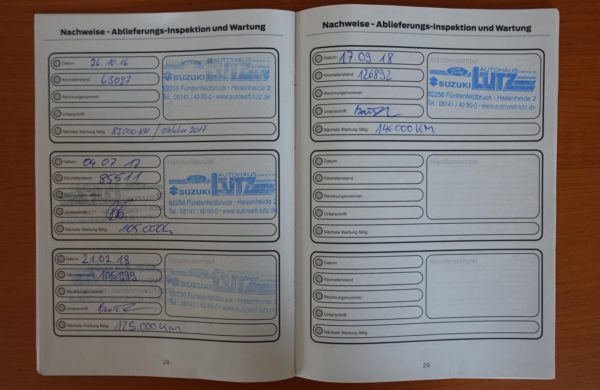 Nachweise - Ablieferungs-Inspektion und Wartung
Datum: 26.10.16
Kilometerstand: 65097
Rechnungsnummer:
Unterschrift:
Nächste Wartung fällig: 83000 KM / Oktober 2017
SUZUKI LUTZ
82256 Fürstenfeldbruck - Hasenheide 2
Tel.: 08141 / 40 90-0 - www.autowelt-lutz.de
Datum: 04.07.17
Kilometerstand: 85511
Unterschrift:
Nächste Wartung fällig: 105.000
Händlerstempel
AUTOHAUS
SUZUKI LUTZ
82256 Fürstenfeldbruck - Hasenheide 2
Tel.: 08141 / 40 90-0 - www.autowelt-lutz.de
Datum: 21.02.18
Kilometerstand: 105999
Rechnungsnummer:
Unterschrift:
Nächste Wartung fällig: 125.000 KM
Händlerstempel
SUZUKI
82256 Fürstenfeldbruck - Hasenheide 2
Tel.: 08141 / 40 90-0 - www.autowelt-lutz.de
28
Nachweise - Ablieferungs-Inspektion und Wartung
Datum: 17.09.18
Kilometerstand: 126892
Rechnungsnummer:
Unterschrift:
Nächste Wartung fällig: 146.000 KM
AUTOHAUS
SUZUKI LUTZ
82256 Fürstenfeldbruck - Hasenheide 2
Tel.: 08141 / 40 90-0 - www.autowelt-lutz.de
Datum:
Kilometerstand:
Rechnungsnummer:
Unterschrift:
Nächste Wartung fällig:
Händlerstempel
Datum:
Kilometerstand:
Rechnungsnummer:
Unterschrift:
Nächste Wartung fällig:
Händlerstempel
29